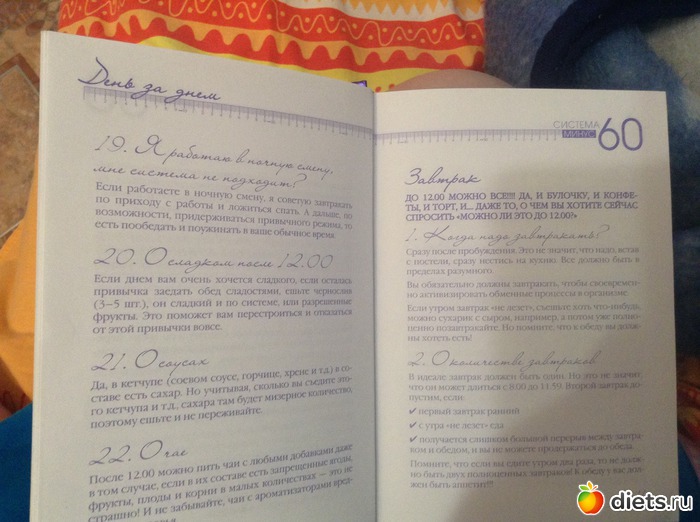 День за днем
19. Я работаю в ночную смену,
мне система не подходит?
Если работаете в ночную смену, я советую завтракать
по приходу с работы и ложиться спать. А дальше, по
возможности, придерживаться привычного режима, то
есть пообедать и поужинать в ваше обычное время.
20. О сладком после 12.00
Если днем вам очень хочется сладкого, если осталась
привычка заедать обед сладостями, ешьте чернослив
(3–5 шт.), он сладкий и по системе, или разрешенные
фрукты. Это поможет вам перестроиться и отказаться
от этой привычки вовсе.
21. О соусах
Да, в кетчупе (соевом соусе, горчице, хрене и т.д.) в со-
ставе есть сахар. Но учитывая, сколько вы съедите это-
го кетчупа и т.д., сахара там будет мизерное количество,
поэтому ешьте и не переживайте.
22. О чае
После 12.00 можно пить чаи с любыми добавками даже
в том случае, если в их составе есть запрещенные ягоды,
фрукты, плоды и корни в малых количествах — это не
страшно! И не забывайте, чаи с ароматизаторами вред-
СИСТЕМА
МИНУС 60
Завтрак
ДО 12.00 МОЖНО ВСЕ!!!! ДА, И БУЛОЧКУ, И КОНФЕ-
ТЫ, И ТОРТ, И... ДАЖЕ ТО, О ЧЕМ ВЫ ХОТИТЕ СЕЙЧАС
СПРОСИТЬ «МОЖНО ЛИ ЭТО ДО 12.00?»
1. Когда надо завтракать?
Сразу после пробуждения. Это не значит, что надо, встав
с постели, сразу нестись на кухню. Все должно быть в
пределах разумного.
Вы обязательно должны завтракать, чтобы своевремен-
но активизировать обменные процессы в организме.
Если утром завтрак «не лезет», съешьте хоть что-нибудь,
можно сухарик с сыром, например, а потом уже полно-
ценно позавтракайте. Но помните, что к обеду вы долж-
ны хотеть есть!
2. О количестве завтраков
В идеале завтрак должен быть один. Но это не значит
что он может длиться с 8.00 до 11.59. Второй завтрак до-
пустим, если:
✔ первый завтрак ранний
✔ с утра «не лезет» еда
✔ получается слишком большой перерыв между завтра-
ком и обедом, и вы не можете продержаться до обеда
Помните, что если вы едите утром два раза, то не долж-
но быть двух полноценных завтраков! К обеду у вас дол-
жен быть аппетит!!!
diets.ru